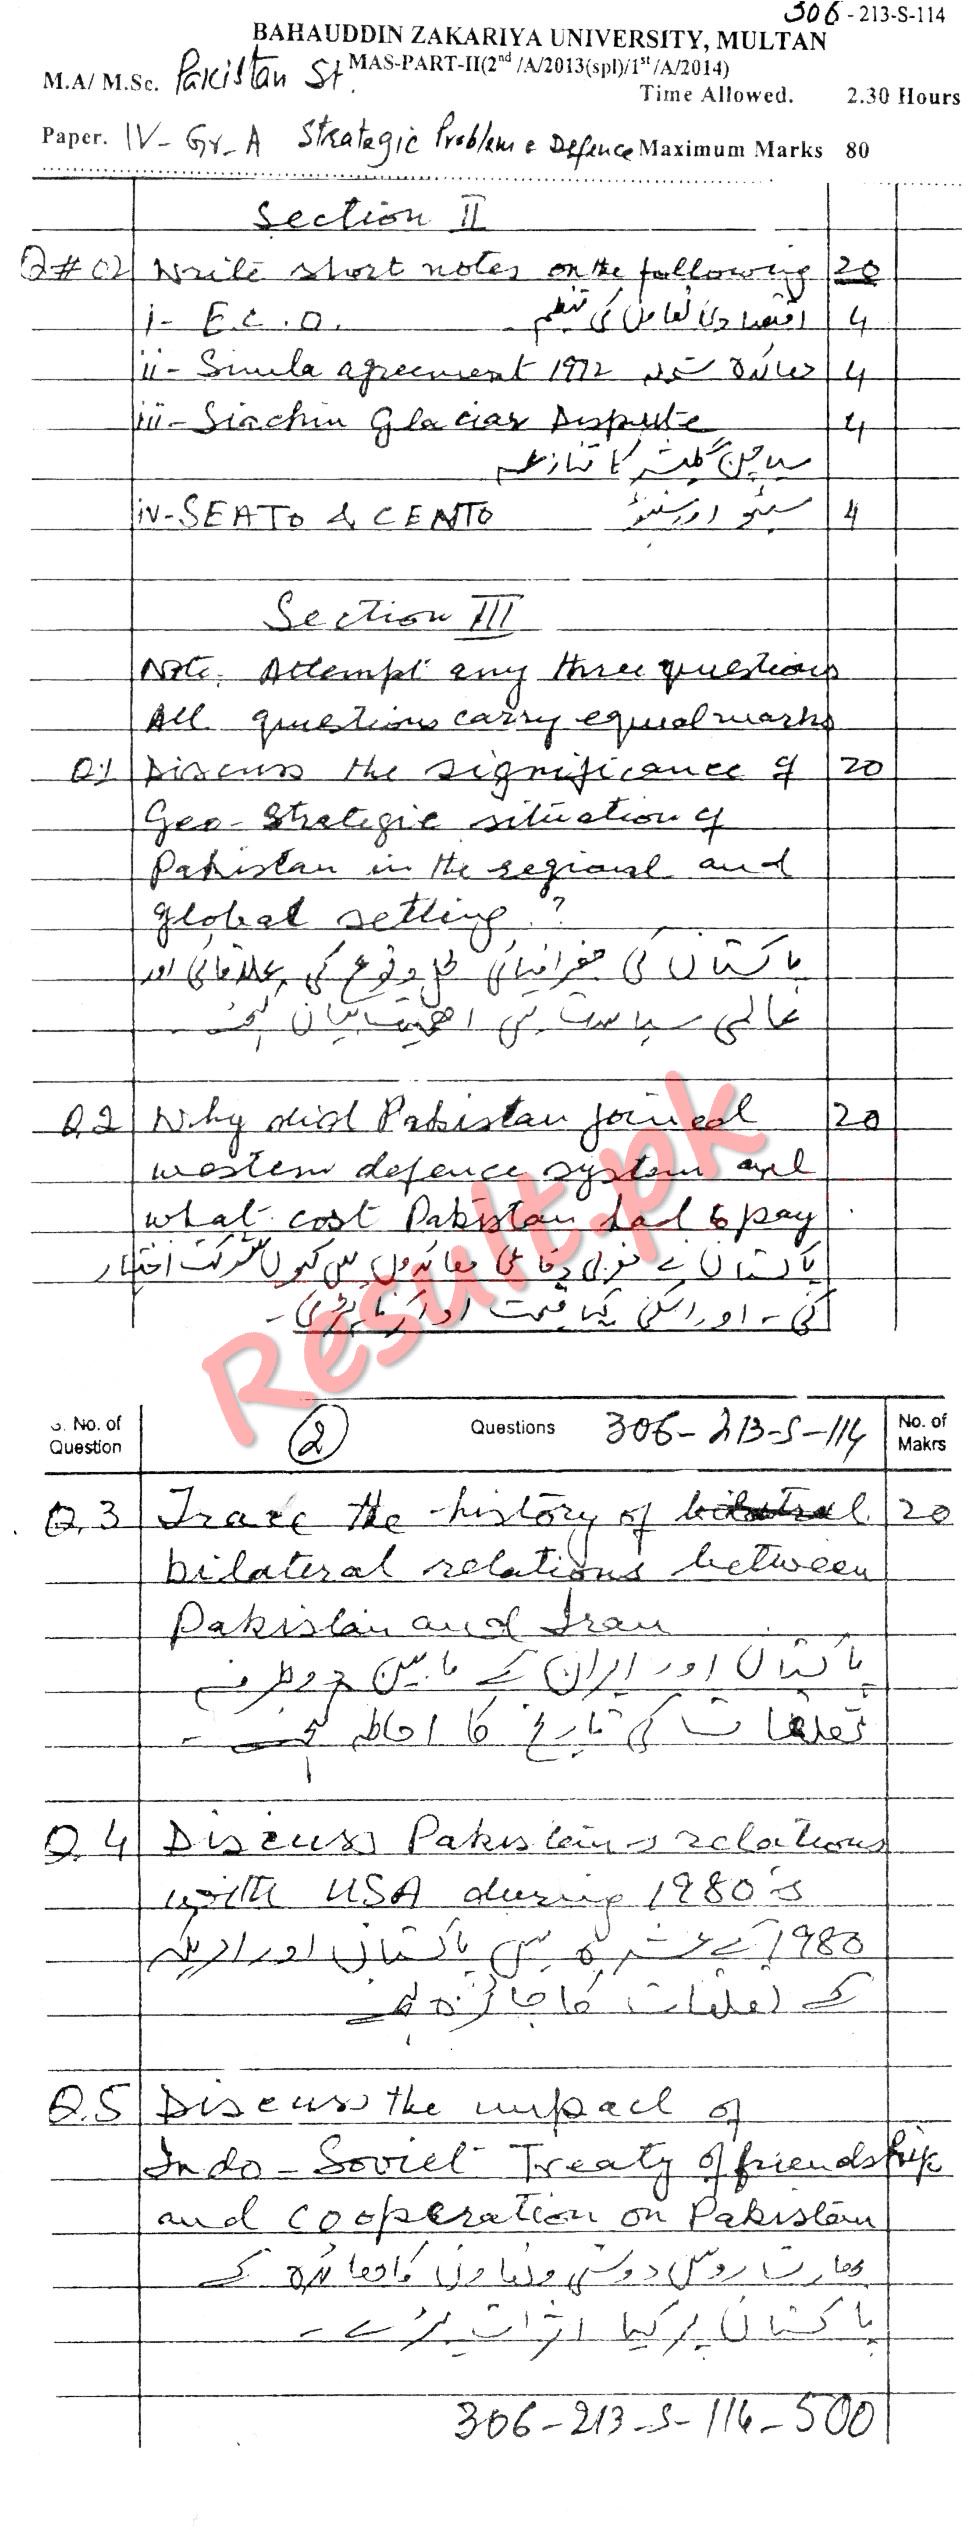 306-213-S-114
BAHAUDDIN ZAKARIYA UNIVERSITY, MULTAN
M.A/ M.Sc. Pakistan St. MAS-PART-II(2nd /A/2013(spl)/1st /A/2014)
Time Allowed. 2.30 Hours
Paper. IV-Gr-A Strategic Problem & Defence Maximum Marks 80
Section II
Q#02 Write short notes on the following 20
i- E.C.O. اقتصادی تعاون کی تنظیم 4
ii- Simla agreement 1972 معائدہ شملہ 4
iii- Siachin Glaciar Dispute 4
سیاچن گلیشر کا تنازعہ
iv- SEATO & CENTO سیٹو اور سنٹو 4
Section III
Note. Attempt any three questions
All questions carry equal marks
Q.1 Discuss the significance of 20
Geo-Strategic situation of
Pakistan in the regional and
global setting.?
پاکستان کی جغرافیائی محل وقوع کی علاقائی اور
عالمی سیاست میں اہمیت بیان کیجئے۔
Q.2 Why did Pakistan joined 20
western defence system and
what cost Pakistan had to pay
پاکستان نے مغربی دفاعی معائدوں میں کیوں شرکت اختیار
کی۔ اور اسکی کیا قیمت ادا کرنا پڑی۔
Result.pk
S. No. of Question
2
Questions 306-213-S-114
No. of Makrs
Q.3 Trace the history of 20
bilateral relations between
Pakistan and Iran
پاکستان اور ایران کے مابین دوطرفہ
تعلقات کی تاریخ کا احاطہ کیجئے۔
Q.4 Discuss Pakistan,s relations
with USA during 1980's
1980 کے عشرہ میں پاکستان اور امریکہ
کے تعلقات کا جائزہ لیجئے
Q.5 Discuss the impact of
Indo-Soviet Treaty of friendship
and cooperation on Pakistan
بھارت روس دوستی و تعاون کا معائدہ کے
پاکستان پر کیا اثرات پڑے۔
306-213-S-114-500